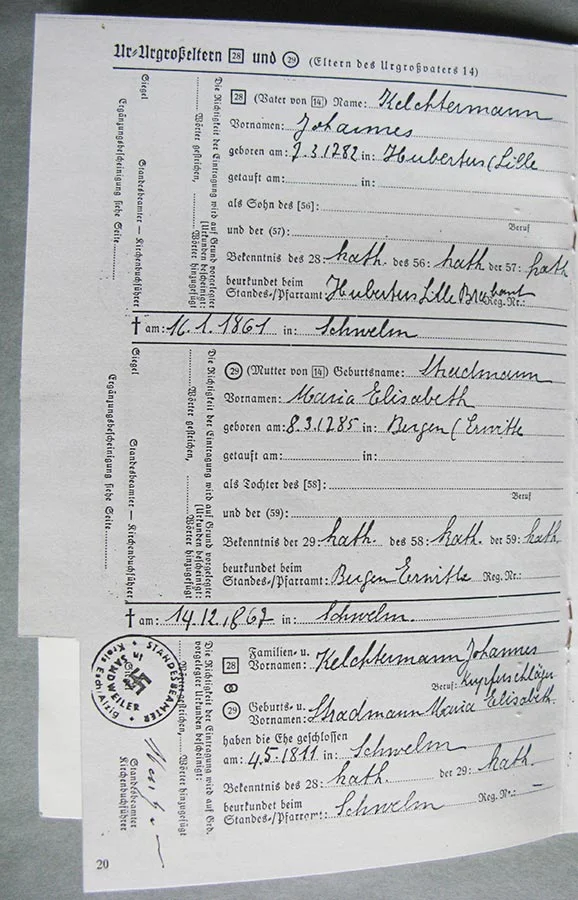 Ur-Urgroßeltern 28 und 29 (Eltern des Urgroßvaters 14)
28 (Vater von 14) Name: Kelchtermann
Vornamen: Johannes
geboren am: 7.3.1782 in: Hubertus (Lille
getauft am: in:
als Sohn des [56]:
und der (57): Beruf
Bekenntnis des 28: kath. des 56: kath der 57: kath
beurkundet beim
Standes-/Pfarramt: Hubertus Lille Brabant Reg.Nr.:
† am: 16.1.1861 in: Schwelm
Die Richtigkeit der Eintragung wird auf Grund vorgelegter
Urkunden bescheinigt:
Wörter gestrichen, Wörter hinzugefügt
Siegel Standesbeamter — Kirchenbuchführer
Ergänzungsbescheinigung siehe Seite
29 (Mutter von 14) Geburtsname: Stradmann
Vornamen: Maria Elisabeth
geboren am: 8.3.1785 in: Bergen (Erwitte
getauft am: in:
als Tochter des [58]:
Beruf
und der (59):
Bekenntnis der 29: kath. des 58: kath. der 59: kath.
beurkundet beim
Standes-/Pfarramt: Bergen Erwitte Reg. Nr.:
† am: 14.12.1867 in: Schwelm.
Die Richtigkeit der Eintragung wird auf Grund vorgelegter
Urkunden bescheinigt:
Wörter gestrichen, Wörter hinzugefügt
Siegel Standesbeamter — Kirchenbuchführer
Ergänzungsbescheinigung siehe Seite
28 Familien- u.
Vornamen: Kelchtermann Johannes
Beruf: Kupferschläger
29 Geburts- u.
Vornamen: Stradmann Maria Elisabeth
haben die Ehe geschlossen
am: 4.5.1811 in: Schwelm
Bekenntnis des 28: kath. der 29: kath.
beurkundet beim
Standes-/Pfarramt: Schwelm Reg. Nr.: —
Die Richtigkeit der Eintragung wird auf Grd.
vorgelegter Urkunden bescheinigt:
Wörter gestrichen, Wörter hinzugefügt
STANDESBEAMTER
in
SANDWEILER
Kreis Esch/Alzig
Standesbeamter
Kirchenbuchführer
20